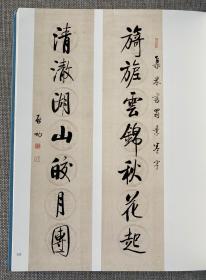 旖旎雲錦秋花起
集米書蜀素卷字
清澈湖山皎月團
啟功